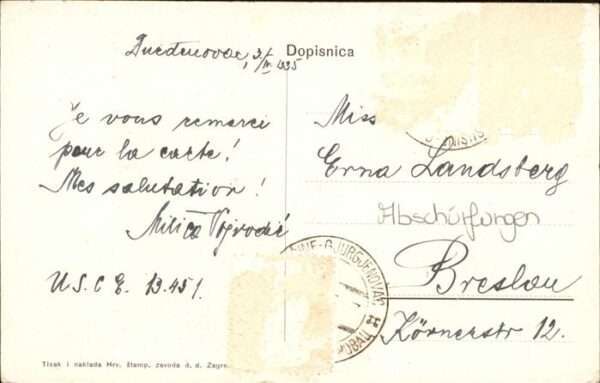 Dopisnica
3/IV 1935
Je vous remerci
pour la carte!
Mes salutation!
Milica
U.S.C.E. 13.451.
Tisak i naklada Hrv. štamp. zavoda d. d. Zagre
Miss
Erna Landsberg
Abschürfungen
Breslau
Körnerstr 12.
GJURGJENOVAC